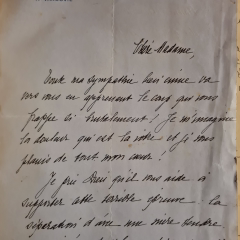 Chère Madame,
Toute ma sympathie bien émue va
vers vous en apprenant le coup qui vous
frappe si brutalement ! Je m'imagine
la douleur qui est la vôtre et je vous
plains de tout mon cœur !
Je prie Dieu qu'il vous aide à
supporter cette terrible épreuve. La
séparation d'avec une mère tendre